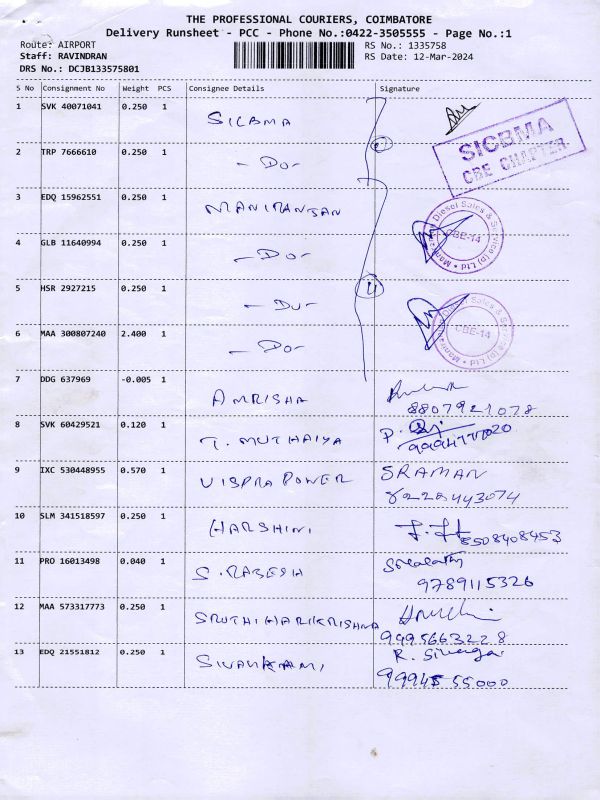 THE PROFESSIONAL COURIERS, COIMBATORE
Delivery Runsheet - PCC - Phone No.:0422-3505555 - Page No.:1
Route: AIRPORT
RS No.: 1335758
Staff: RAVINDRAN
RS Date: 12-Mar-2024
DRS No.: DCJB133575801
S No Consignment No Weight PCS Consignee Details Signature
1 SVK 40071041 0.250 1 SICBMA
SICBMA
CBE CHAPTER
2 TRP 7666610 0.250 1 - Do -
3 EDQ 15962551 0.250 1 MANIRANJAN
Diesel Sales & Service (p) Ltd
CBE-14
4 GLB 11640994 0.250 1 - Do -
5 HSR 2927215 0.250 1 - Do -
Diesel Sales & Service (p) Ltd
CBE-14
6 MAA 300807240 2.400 1 - Do -
7 DDG 637969 -0.005 1 AMRISHA
8807921078
8 SVK 60429521 0.120 1 T. MUTHAIYA P.
9 IXC 530448955 0.570 1 VISPRA POWER SRAMAN
8228443074
10 SLM 341518597 0.250 1 HARSHINI
8508408453
11 PRO 16013498 0.040 1 S. RAJESH
9789115326
12 MAA 573317773 0.250 1 SRUTHI HARIKRISHNA
9495663228
13 EDQ 21551812 0.250 1 SIVAKAMI
99945 55000